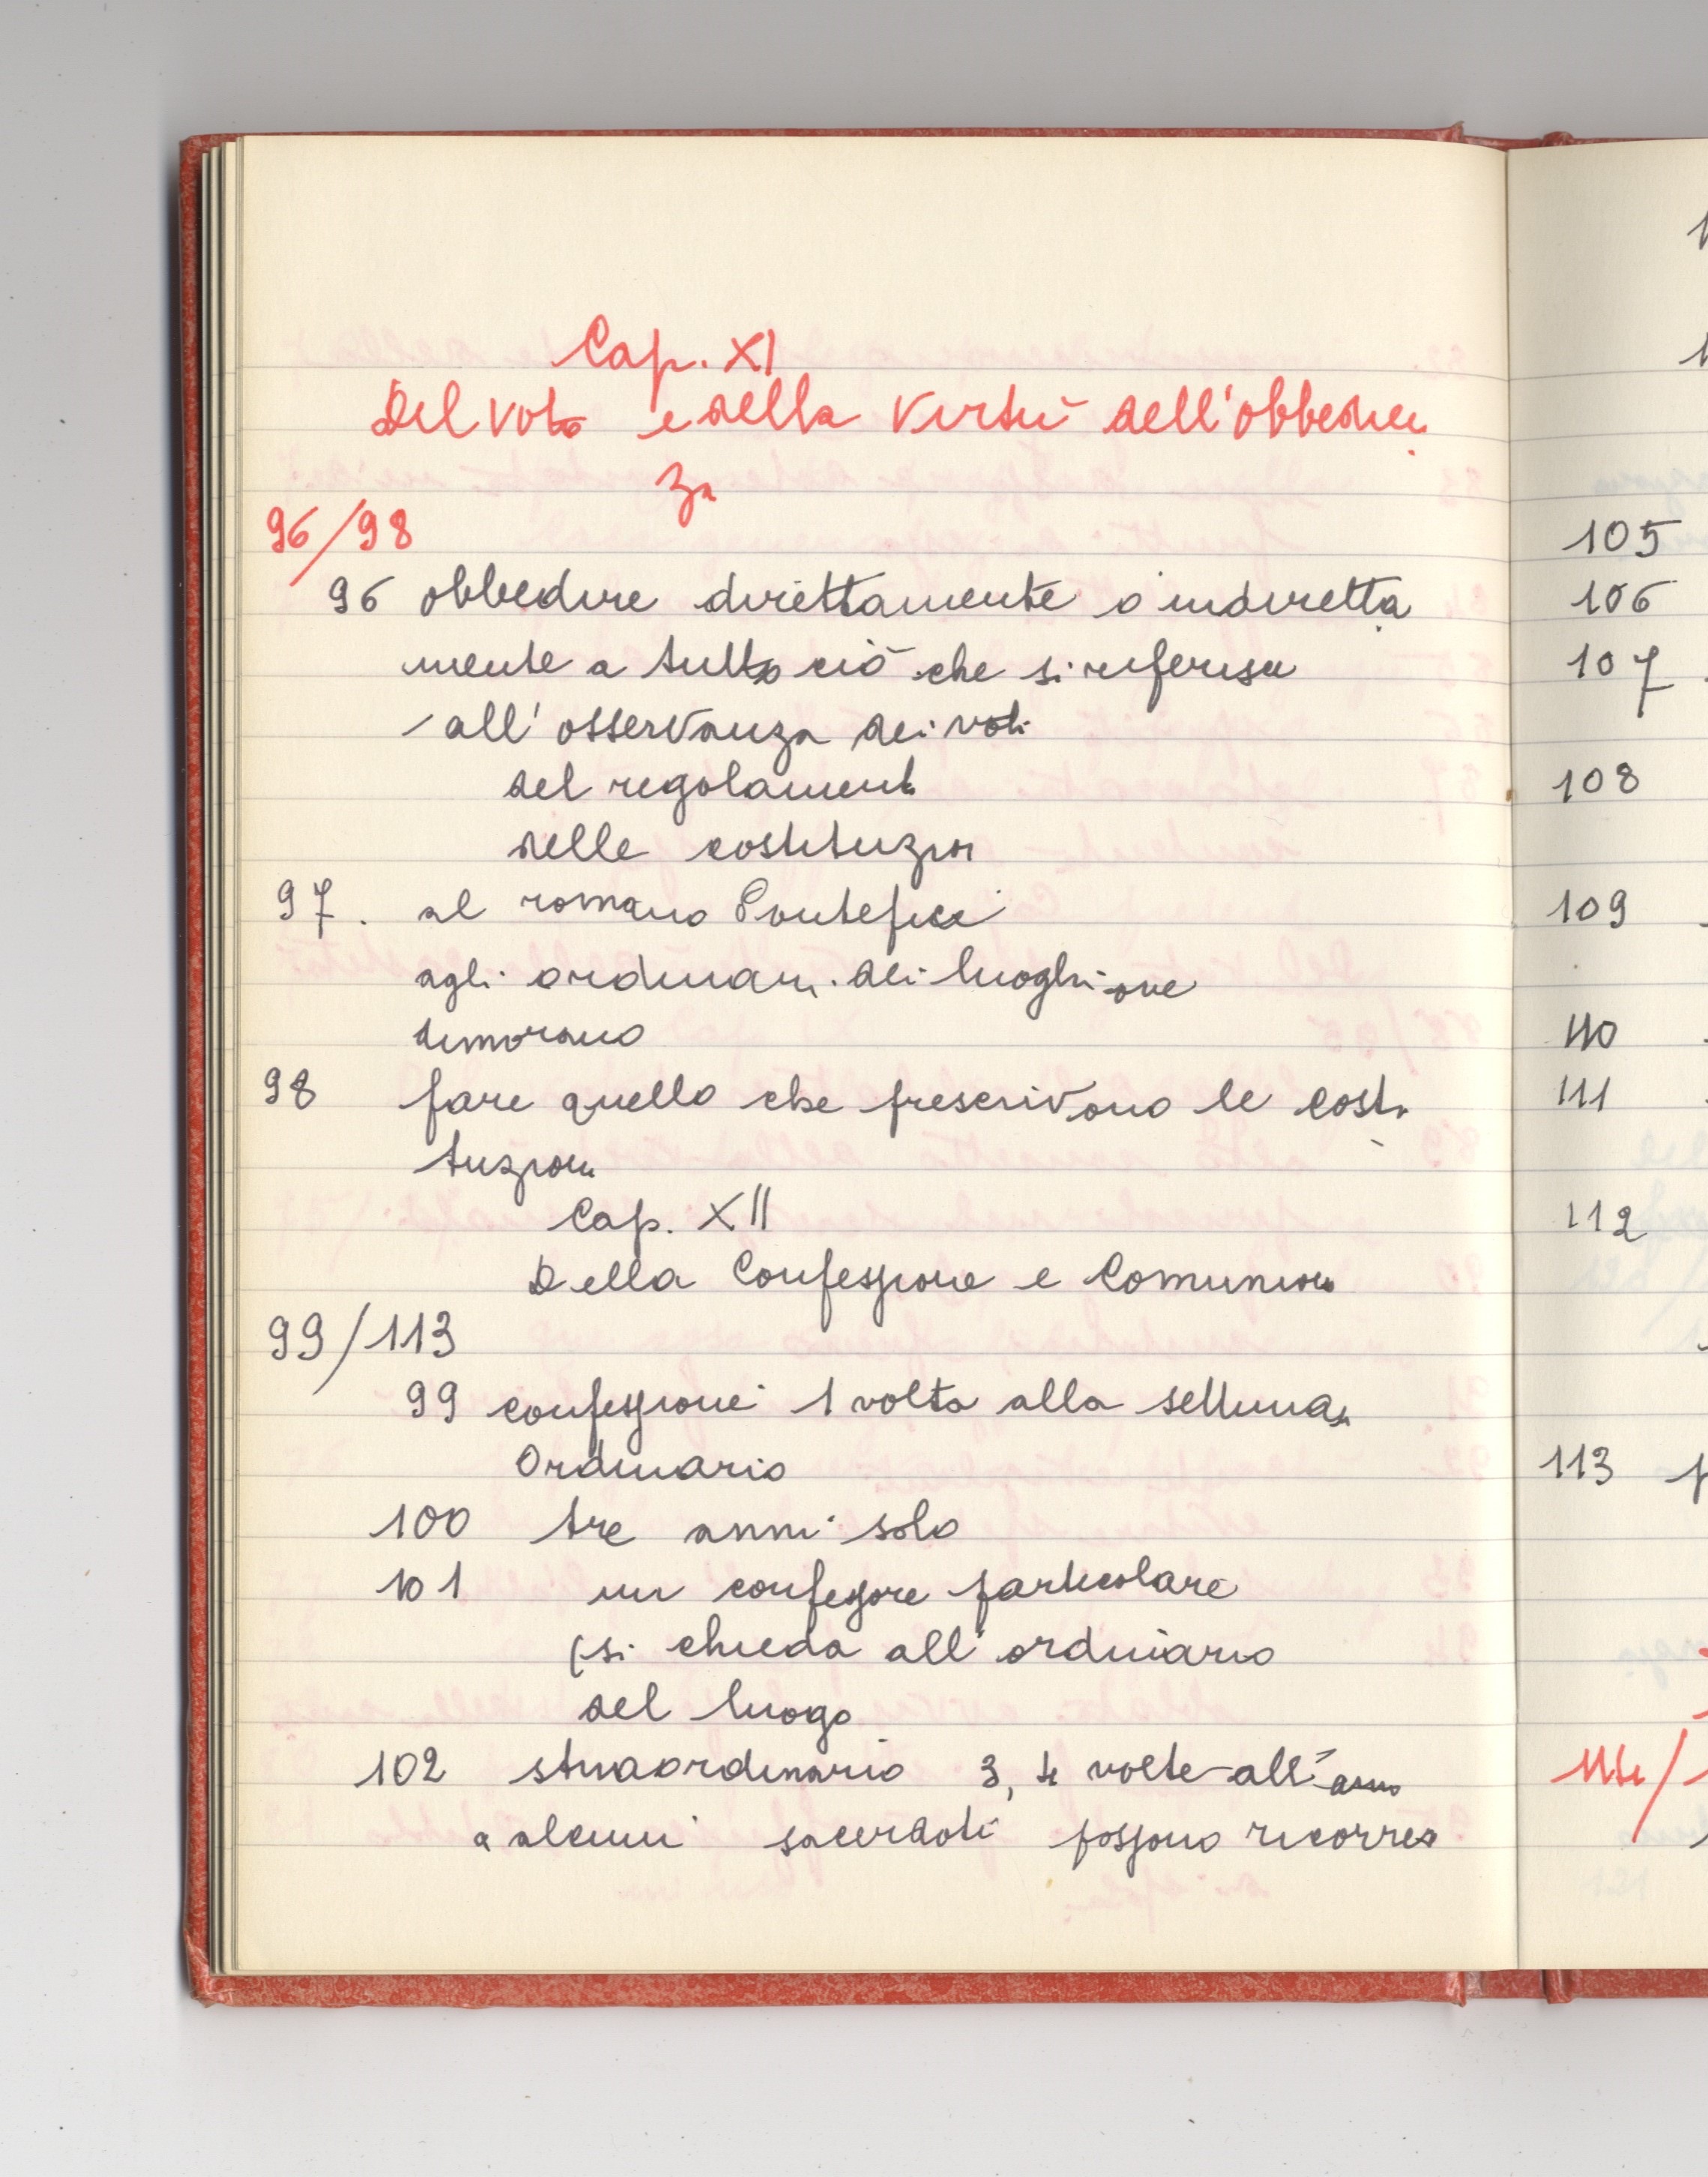 Cap. XI
Del voto e della Virtù dell'obbedien
za
96/98
96 obbedire direttamente o indiretta
mente a tutto ciò che si riferisce
all'osservanza dei voti
del regolamento
delle costituzioni
97. al romano Pontefice
agli ordinari dei luoghi ove
dimorano
98 fare quello che prescrivono le costi
tuzioni
Cap. XII
Della Confessione e Comunione
99/113
99 confessione 1 volta alla settimana
Ordinario
100 tre anni solo
101 un confessore particolare
(si chieda all'ordinario
del luogo
102 straordinario 3, 4 volte all'anno
a alcuni sacerdoti possono ricorrere
105
106
107
108
109
110
111
112
113
114/